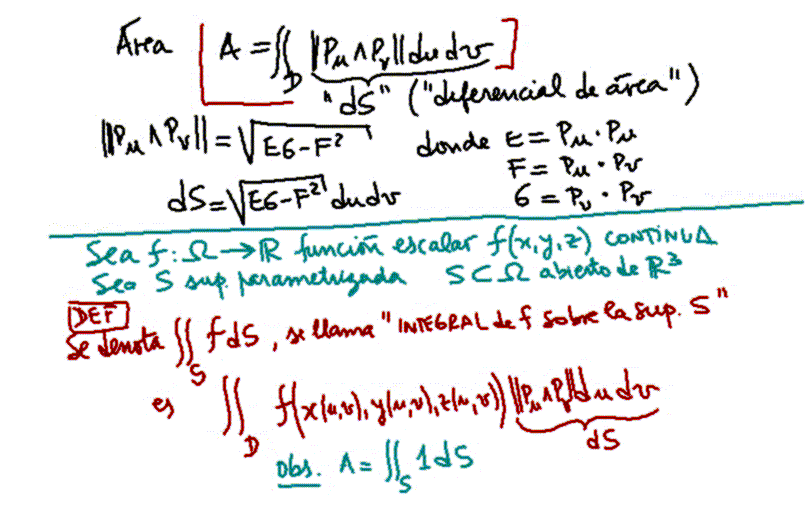 Área [ A = ∬_D ||P_u ∧ P_v|| du dv ]
"dS" ("diferencial de área")
||P_u ∧ P_v|| = √(EG-F²) donde E = P_u · P_u
F = P_u · P_v
dS = √(EG-F²) du dv G = P_v · P_v
Sea f: Ω → ℝ función escalar f(x,y,z) CONTINUA
Sea S sup. parametrizada S ⊂ Ω abierto de ℝ³
DEF
Se denota ∬_S f dS, se llama "INTEGRAL de f sobre la sup. S"
es ∬_D f(x(u,v), y(u,v), z(u,v)) ||P_u ∧ P_v|| du dv
dS
Obs. A = ∬_S 1 dS